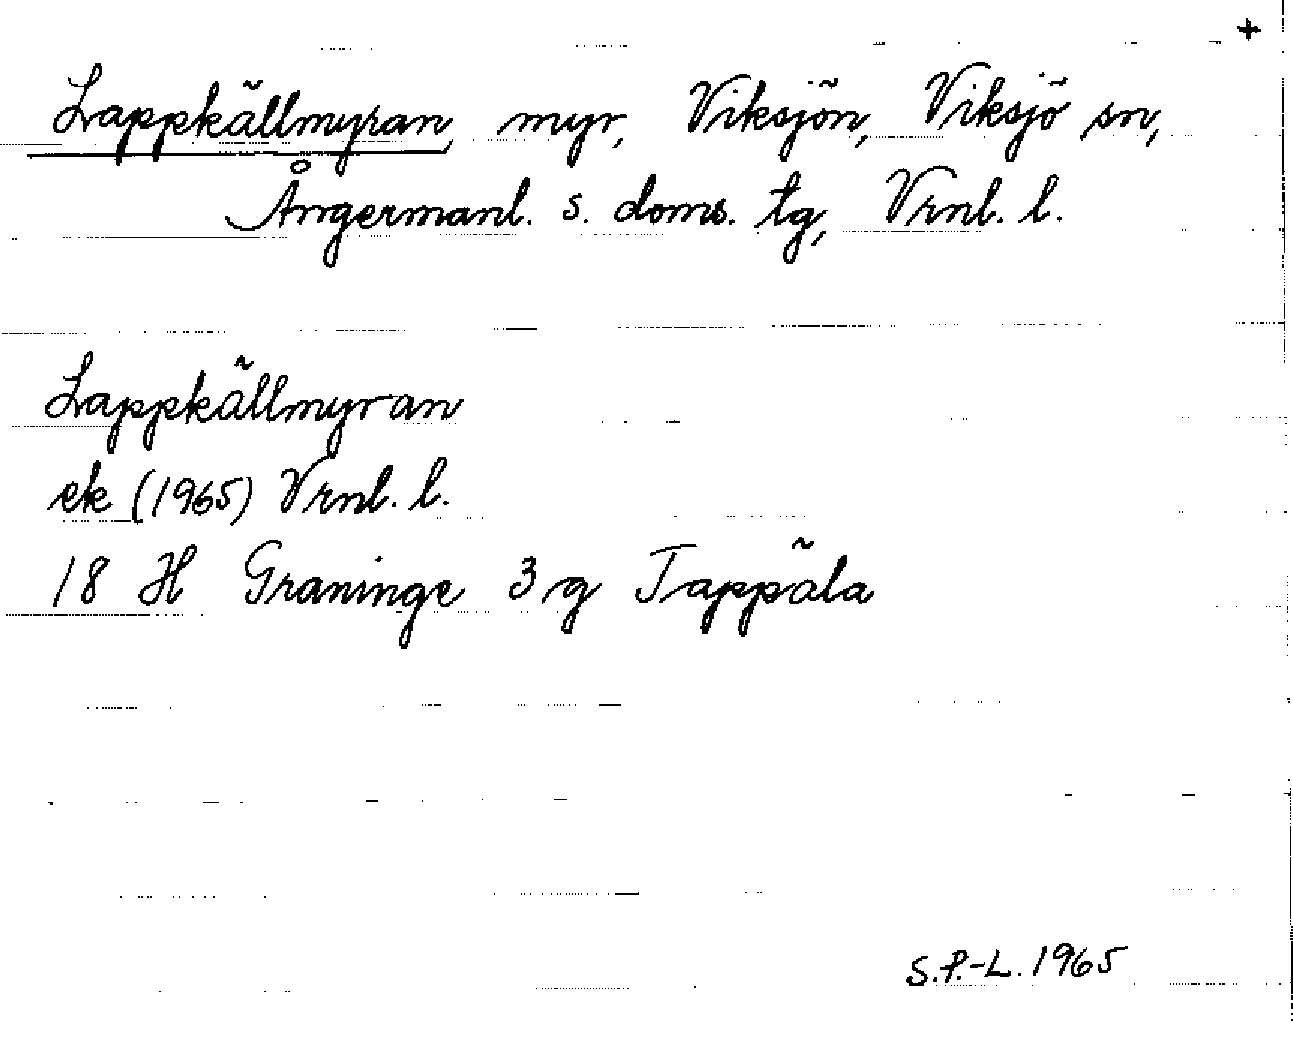 +
Lappkällmyran, myr, Viksjön, Viksjö sn,
Ångermanl. s. doms. tg, Vrnl. l.
Lappkällmyran
ek (1965) Vrnl. l.
18 H Graninge 3 g Tappäla
S.P.-L. 1965